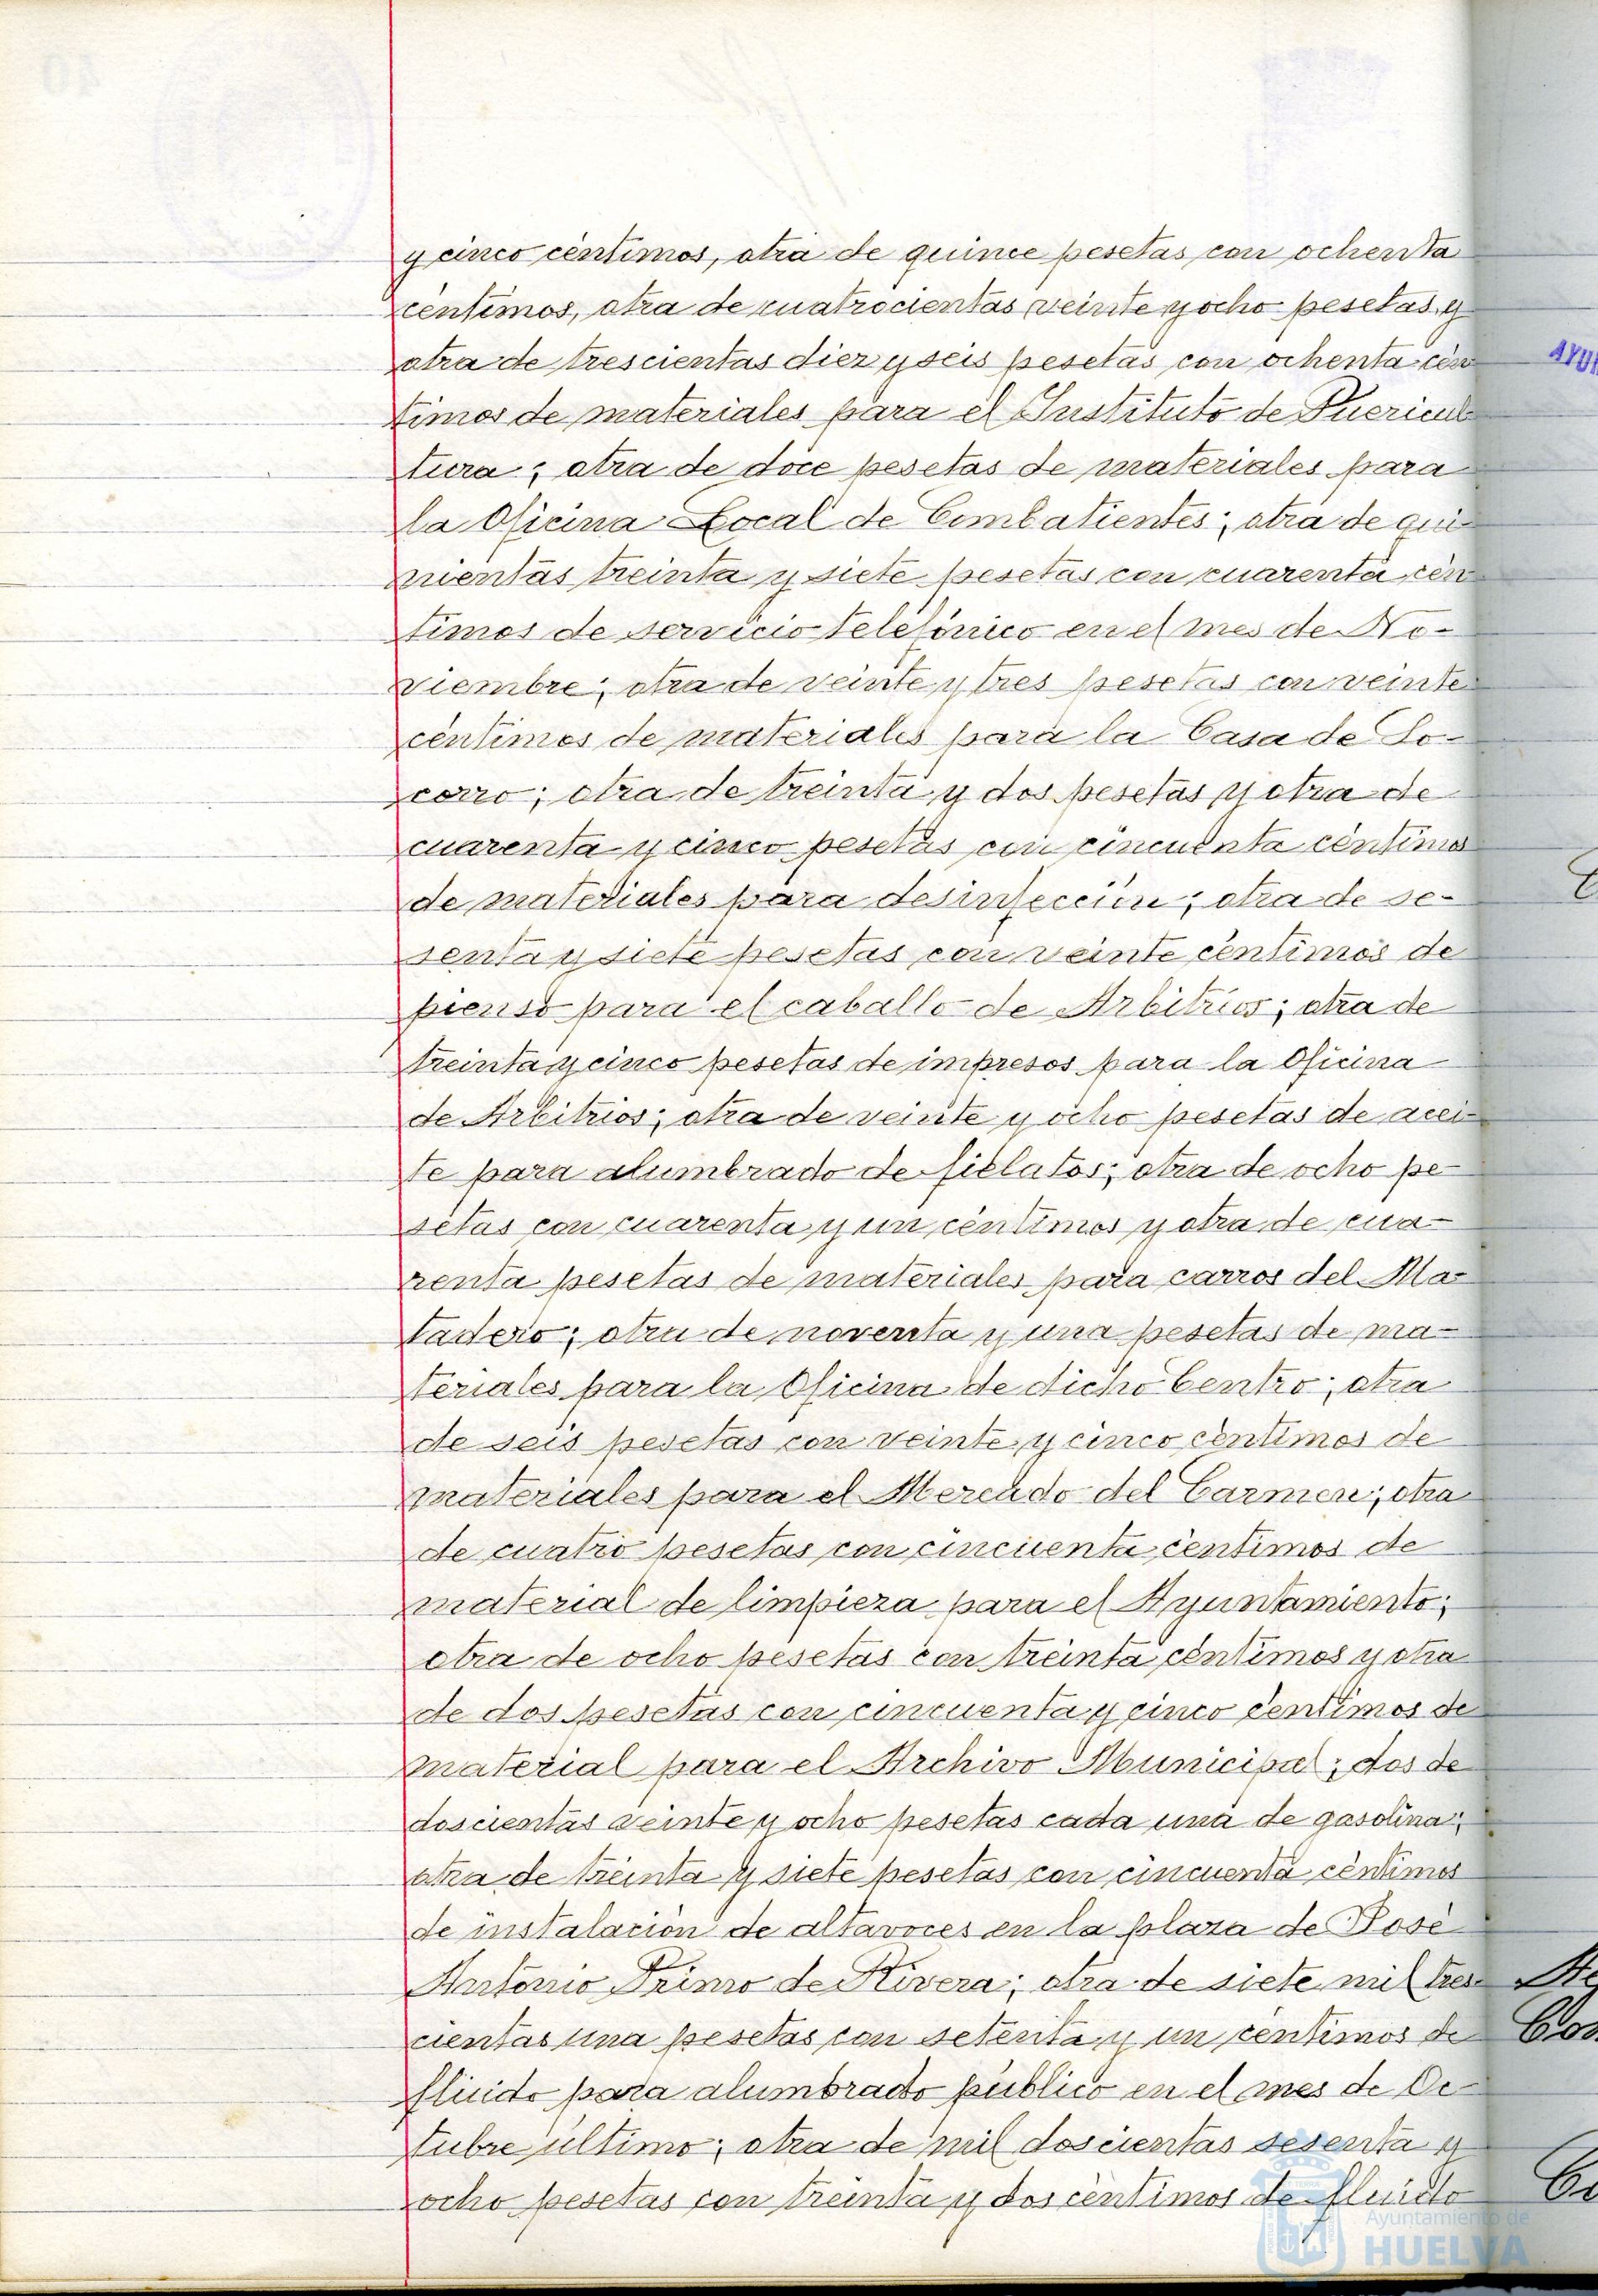 y cinco céntimos, otra de quince pesetas con ochenta
céntimos, otra de cuatrocientas veinte y ocho pesetas y
otra de trescientas diez y seis pesetas con ochenta cén
timos de materiales para el Instituto de Puericul
tura; otra de doce pesetas de materiales para
la Oficina Local de Combatientes; otra de qui
nientas treinta y siete pesetas con cuarenta cén
timos de servicio telefónico en el mes de No-
viembre; otra de veinte y tres pesetas con veinte
céntimos de materiales para la Casa de So-
corro; otra de treinta y dos pesetas y otra de
cuarenta y cinco pesetas con cincuenta céntimos
de materiales para desinfección; otra de se-
senta y siete pesetas con veinte céntimos de
pienso para el caballo de Arbitrios; otra de
treinta y cinco pesetas de impresos para la Oficina
de Arbitrios; otra de veinte y ocho pesetas de acei-
te para alumbrado de fielatos; otra de ocho pe-
setas con cuarenta y un céntimos y otra de cua-
renta pesetas de materiales para carros del Ma-
tadero; otra de noventa y una pesetas de ma-
teriales para la Oficina de dicho Centro; otra
de seis pesetas con veinte y cinco céntimos de
materiales para el Mercado del Carmen; otra
de cuatro pesetas con cincuenta céntimos de
material de limpieza para el Ayuntamiento;
otra de ocho pesetas con treinta céntimos y otra
de dos pesetas con cincuenta y cinco céntimos de
material para el Archivo Municipal; dos de
doscientas veinte y ocho pesetas cada una de gasolina;
otra de treinta y siete pesetas con cincuenta céntimos
de instalación de altavoces en la plaza de José
Antonio Primo de Rivera; otra de siete mil tres-
cientas una pesetas con setenta y un céntimos de
flúido para alumbrado público en el mes de Oc-
tubre último; otra de mil doscientas sesenta y
ocho pesetas con treinta y dos céntimos de flúido
Ayuntamiento de
HUELVA